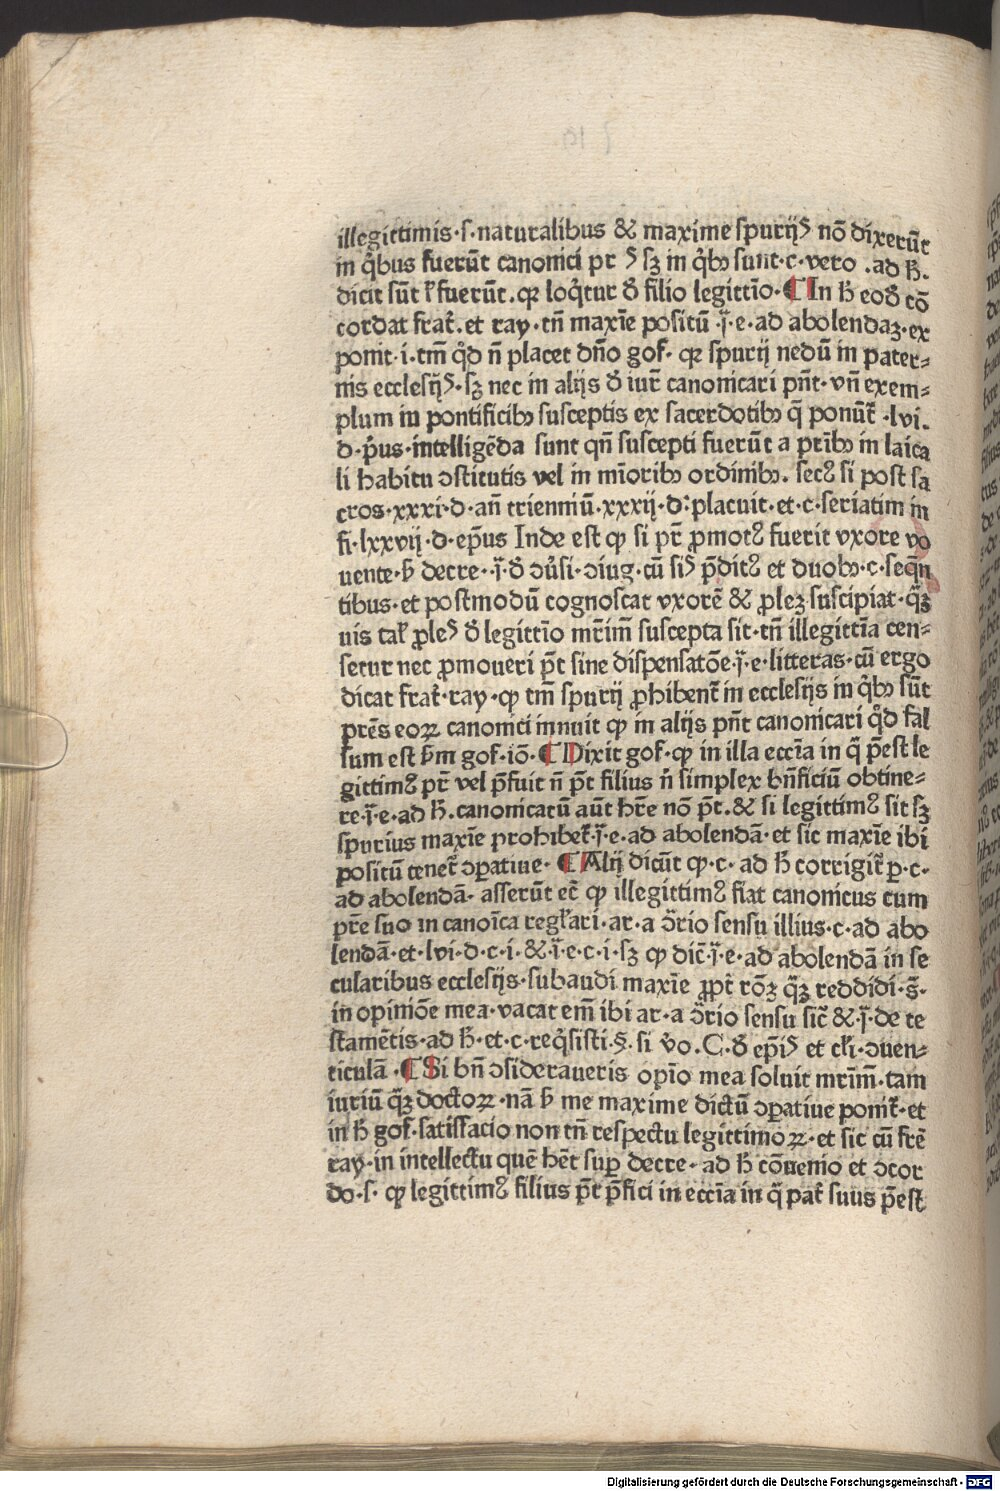 illegittimis·s·naturalibus & maxime spurijꝰ nõ dixerūt
in q̃bus fuerūt canonici pr ꝰ sꝫ in q̃bꝫ sunt·c·vero .ad ħ.
dicit sūt ł fuerūt. qꝛ loq̃tur ð filio legittīo· ¶ In ħ eoð cō
cordat frat̄. et ray· tñ maxīe positū ·j̄·e·ad abolendaꝫ·ex
ponit·i·tm̄ q̇d ñ placet dño gof· qꝛ spurij nedū in pater-
nis ecclesijꝰ· sꝫ nec in alijs ð iur̄ canonicari pñt· vñ exem-
plum in pontificibꝫ susceptis ex sacerdotibꝫ q̄ ponūt̄ ·lvi.
d· p̄us·intelligēda sunt qñ suscepti fuerūt a prībꝫ in laica
li habitu ↄstitutis vel in mīoribꝫ ordinibꝫ. secꝰ si post sa
cros·xxxi·d·añ trienniū·xxxij·d·placuit·et·c·seriatim in
fi·lxxvij·d·ep̄us Inde est ꝙ si pr̄ ꝓmotꝰ fuerit vxore vo
uente·ƀ decre··j̄·ð ↄūsi·ↄiug·cū siꝰ p̄ditꝰ et duobꝫ·c·seq̄n
tibus·et postmodū cognoscat vxorē & ꝓleꝫ suscipiat·q̃ꝫ
uis tał ꝓleꝰ ð legittīo mr̄im̄ suscepta sit·tñ illegittīa cen-
setur nec ꝓmoueri p̄t sine dispensatōe·j̄·e·litteras·cū ergo
dicat frat̄·ray·ꝙ tm̄ spurij ꝓhibent̄ in ecclesijs in q̃bꝫ sūt
prēs eoꝝ canonici innuit ꝙ in alijs pñt canonicari q̇d fal
sum est ƀm gof·iō· ¶ Dixit gof·ꝙ in illa eccīa in q̄ p̄est le
gittimꝰ pr̄ vel p̄fuit ñ p̄t filius ñ simplex bñficiū obtine-
re·j̄·e·ad ħ.canonicatū aūt hr̄e nō p̄t.& si legittimꝰ sit sꝫ
spurius maxīe prohibet̄·j̄·e·ad abolendā·et sic maxīe ibi
positū tenet̄ ↄꝑatiue· ¶ Alij dicūt ꝙ·c· ad ħ corrigit̄ ꝑ·c·
ad abolendā· asserūt ec̄ ꝙ illegittimꝰ fiat canonicus cum
prē suo in canoīca regłari·ar·a ↄ̄rio sensu illius·c·ad abo
lendā·et·lvi·d·c·i·&·j̄·e·c·i·sꝫ ꝙ dic̄·j̄·e·ad abolendā in se
cularibus ecclesijs·subaudi maxīe ꝓpt̄ rōꝫ q̃ꝫ reddidi·s̄·
in opiniōe mea·vacat em̄ ibi ar·a ↄ̄rio sensu sic̄ &·j̄·de te
stamētis·ad ħ·et·c·req̇sisti·§·si v̇o.C·ð ep̄iꝰ et cl̄i·ↄuen-
ticulā · ¶ Si bñ ↄsideraueris opīo mea soluit mr̄im̄·tam
iuriū q̃ꝫ doctoꝝ ·nā ƀ me maxime dictū ↄꝑatiue ponit̄·et
in ħ gof·satisfacio non tñ respectu legittimoꝝ·et sic cū frē
ray·in intellectu quē hēt suꝑ decre· ad ħ cōuenio et ↄcor
do·s· ꝙ legittimꝰ filius p̄t p̄fici in eccīa in q̄ pat̄ suus p̄est
Digitalisierung gefördert durch die Deutsche Forschungsgemeinschaft - DFG